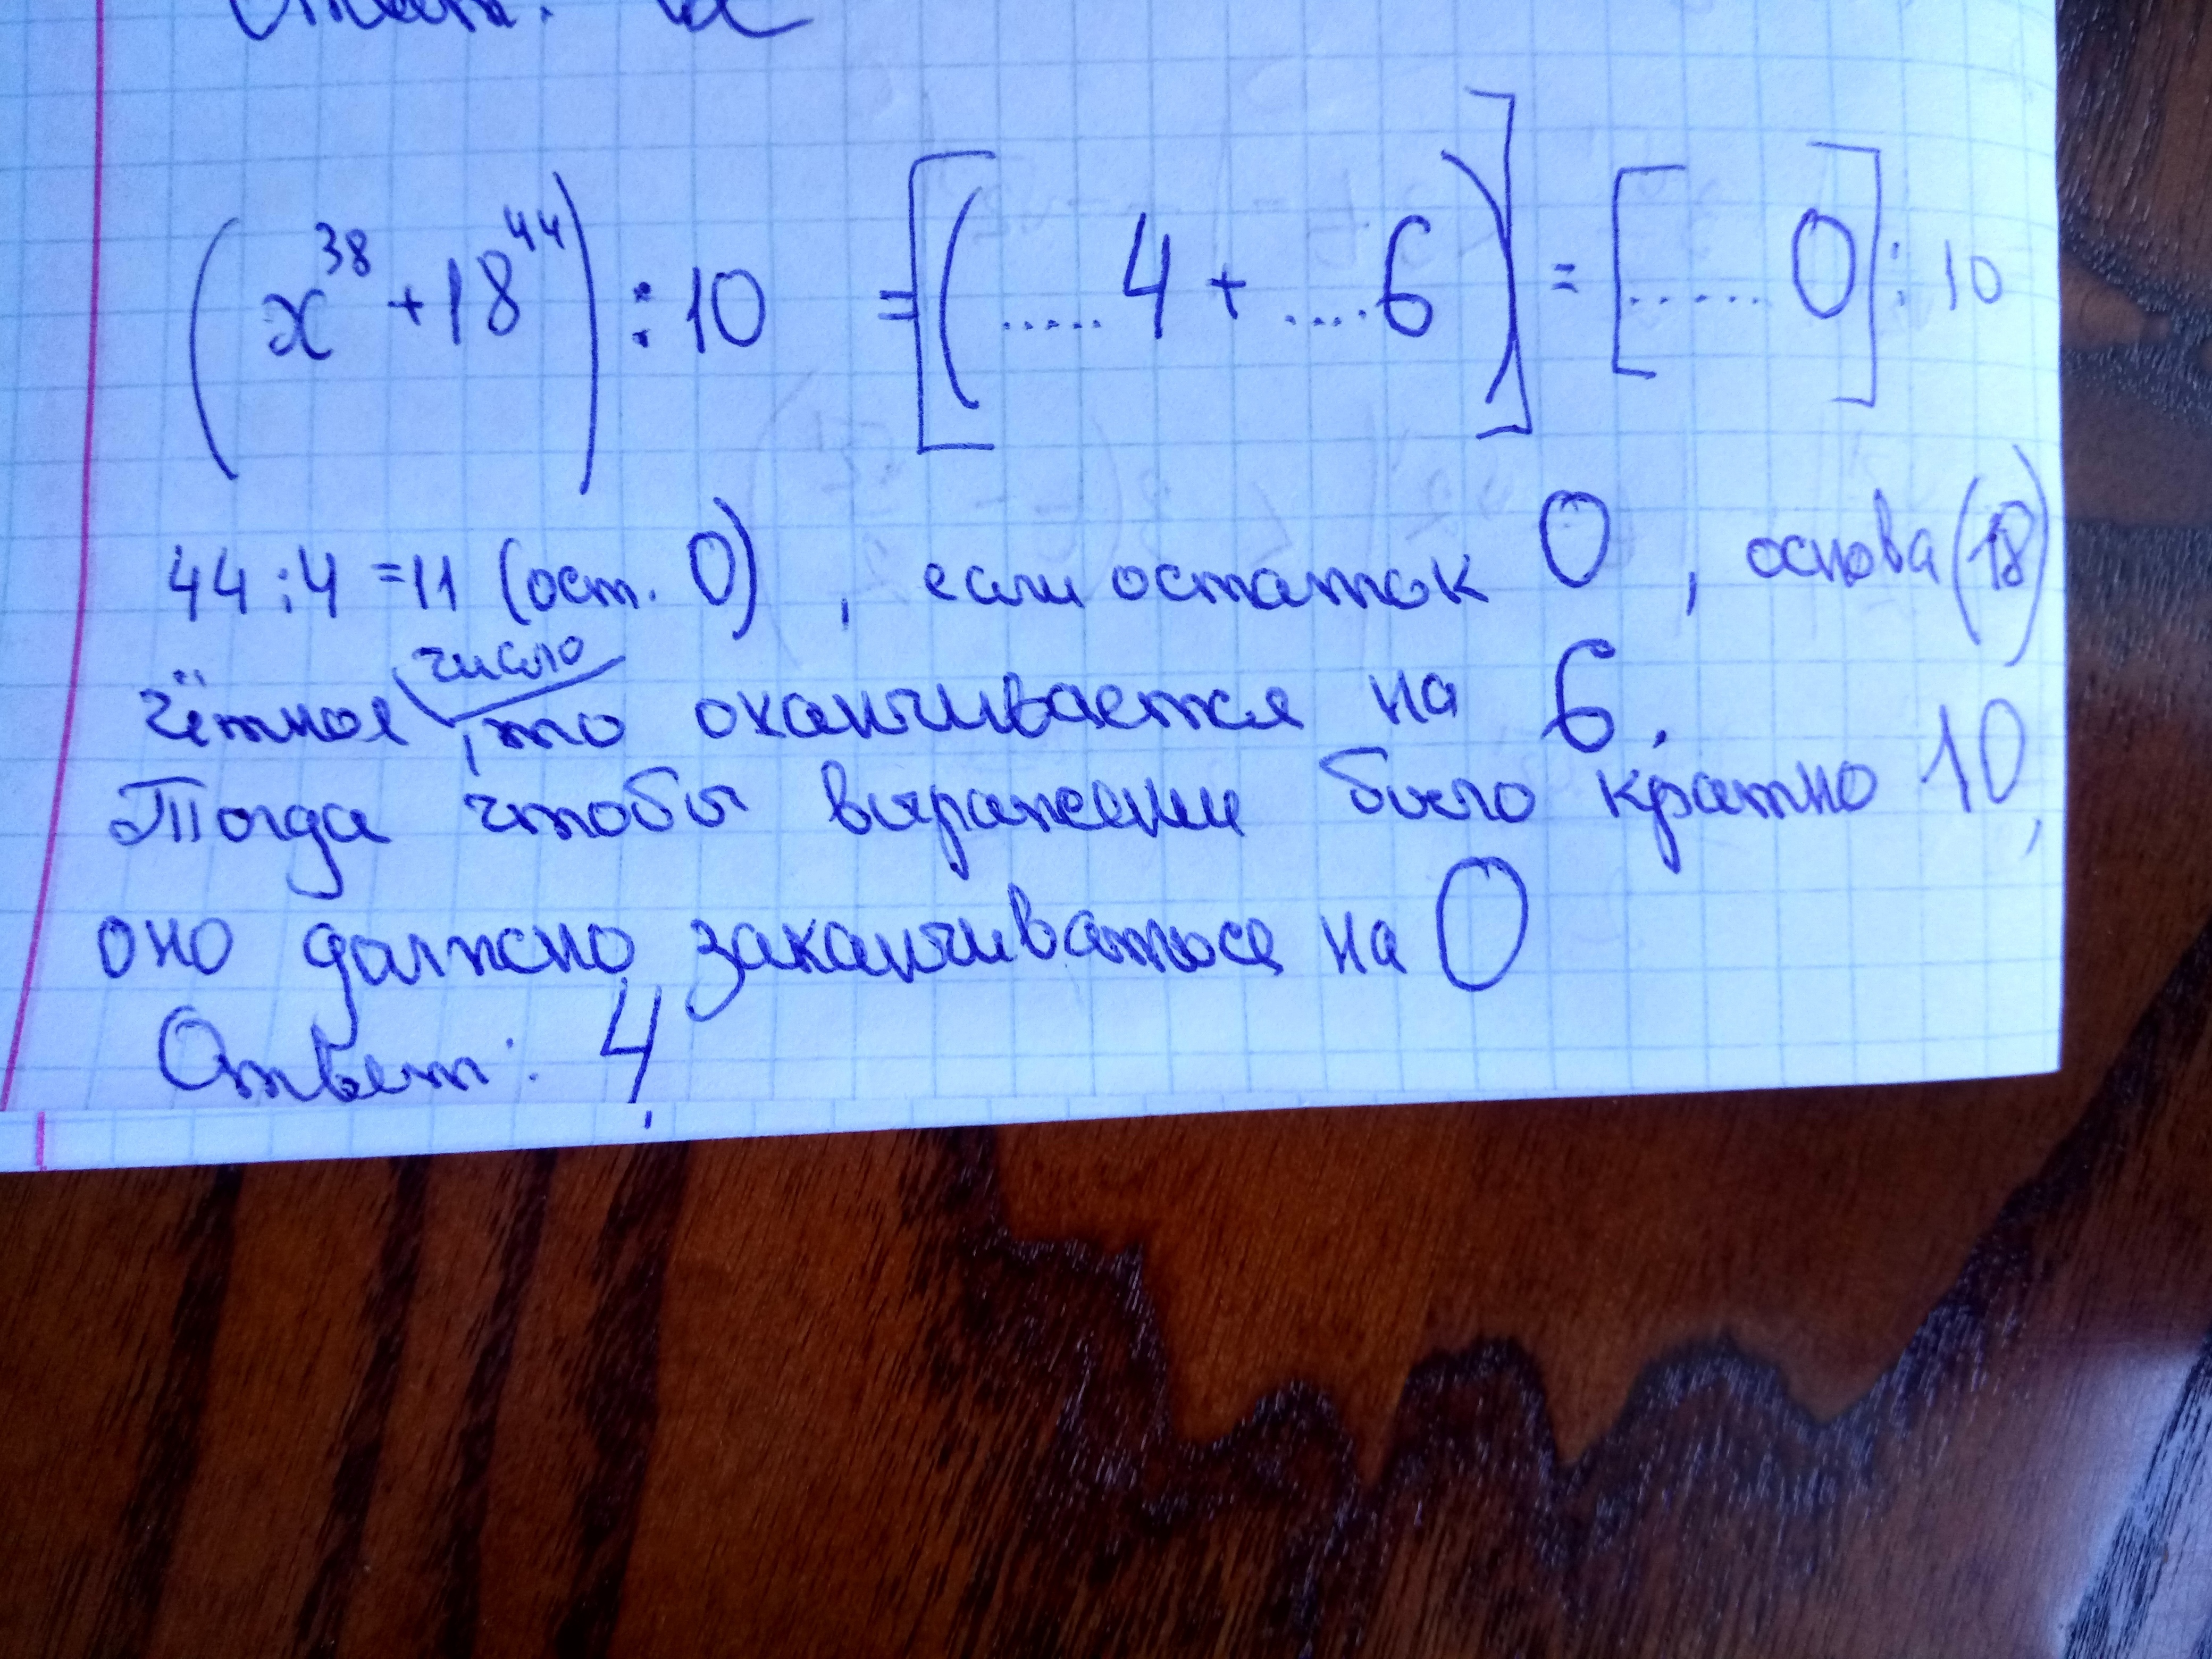 Ответ:
(x³⁸ + 18⁴⁴) : 10 = [(.....4 + ....6)] = [...... 0] : 10
44 : 4 = 11 (ост. 0) , если остаток 0 , основа (18)
чётное число , то оканчивается на 6.
Тогда чтобы выражение было кратно 10,
оно должно заканчиваться на 0
Ответ: 4.